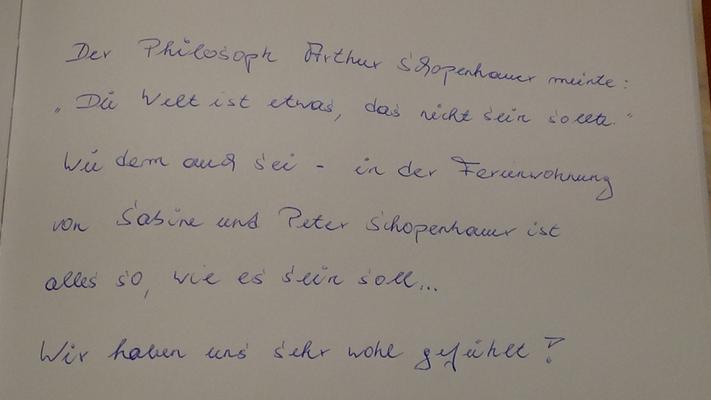 Der Philosoph Arthur Schopenhauer meinte:
„Die Welt ist etwas, das nicht sein sollte."
Wie dem auch sei - in der Ferienwohnung
von Sabine und Peter Schopenhauer ist
alles so, wie es sein soll...
Wir haben uns sehr wohl gefühlt!